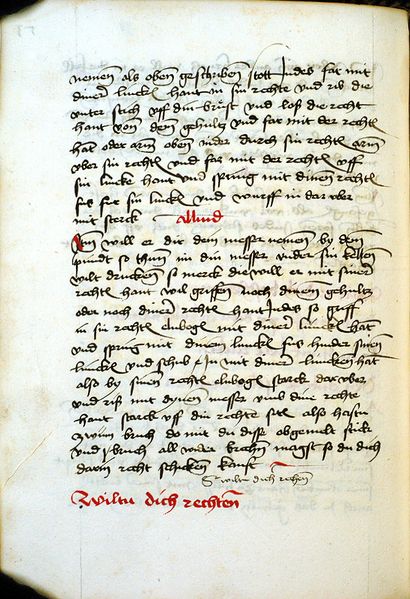 nemen als oben geschriben stott Indes far mit
diner linckn hant in sin rechte vnd rib die
vnter stich vff din brust vnd loß die recht
hant von dem gehultz vnd far mit der rechtn
hat oder arm oben nider durch sin rechtn arm
vber sin rechtn vnd far mit der rechtn vff
sin lincke hant vnd spring mit dinen rechtn
fus fur sin linckn vnd wurff in dar vber
mit sterck Aliud
Itm will er dir dem messer nemen by dem
so thun im din messer vnder sin
wilt drucken so merck die will er mit siner
rechtn hant wil griffen noch dinem gehultz
oder noch diner rechtn hant Indes so griff
in sin rechtn elnbogn mit diner linckn hat
vnd spring mit dinem linckn fus hinder sinen
linckn vnd schib in mit diner lincken hat
also by sinen rechtn elnbogn starck dar vber
vnd riß mit dynen messer vmb dine rechte
hant starck vff din rechte sitn also hastu
zwen bruch do mit du disse obgemelt stuck
vnd bruch all wider brechen magst so du dich
darin recht schicken kanst
wiltu dich rechen
Wiltu dich rechten